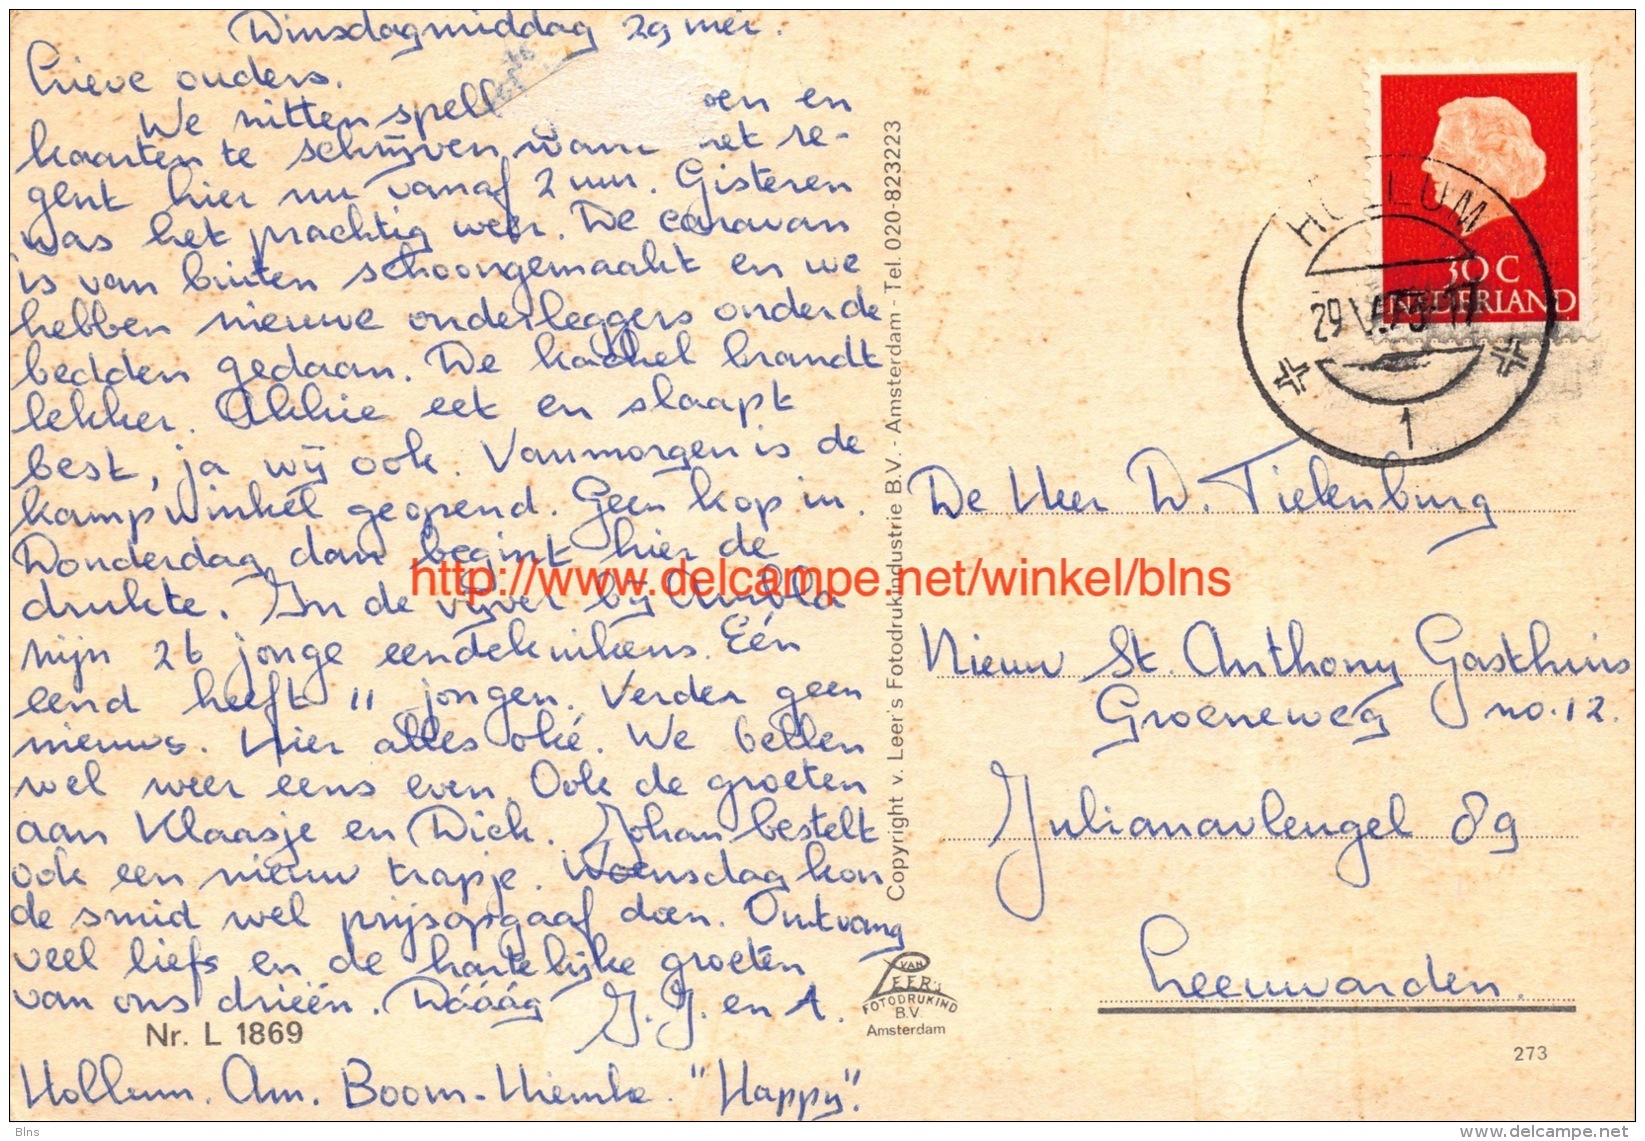 Dinsdagmiddag 29 mei.
Lieve ouders.
We zitten spell oen en
kaarten te schrijven, want het re-
gent hier nu vanaf 2 uur. Gisteren
was het prachtig weer. De caravan
is van buiten schoongemaakt en we
hebben nieuwe onderleggers onder de
bedden gedaan. De kachel brandt
lekker. Akkie eet en slaapt
best, ja wij ook. Vanmorgen is de
kampwinkel geopend. Geen kop in.
Donderdag dan begint hier de
drukte. In de vijver bij
zijn 26 jonge eendekuikens. Eén
eend heeft 11 jongen. Verder geen
nieuws. Hier alles oké. We bellen
wel weer eens even. Ook de groeten
aan Klaasje en Dick. Johan bestelt
ook een nieuw trapje. Woensdag kon
de smid wel prijsopgaaf doen. Ontvang
veel liefs en de hartelijke groeten
van ons drieën. Dááág J. J. en A.
Nr. L 1869
Hollum. Am. Boom-Hiemke. "Happy".
Copyright v. Leer's Fotodrukindustrie B.V. - Amsterdam - Tel. 020-823223
VAN
LEER'S
FOTODRUKIND
B.V.
Amsterdam
30 C
NEDERLAND
HOLLUM
29 V.73 17
1
De Heer D. Tielenburg
Nieuw St. Anthony Gasthuis
Groeneweg no. 12.
Julianavlengel 89
Leeuwarden.
273
http://www.delcampe.net/winkel/blns
Blns
www.delcampe.net